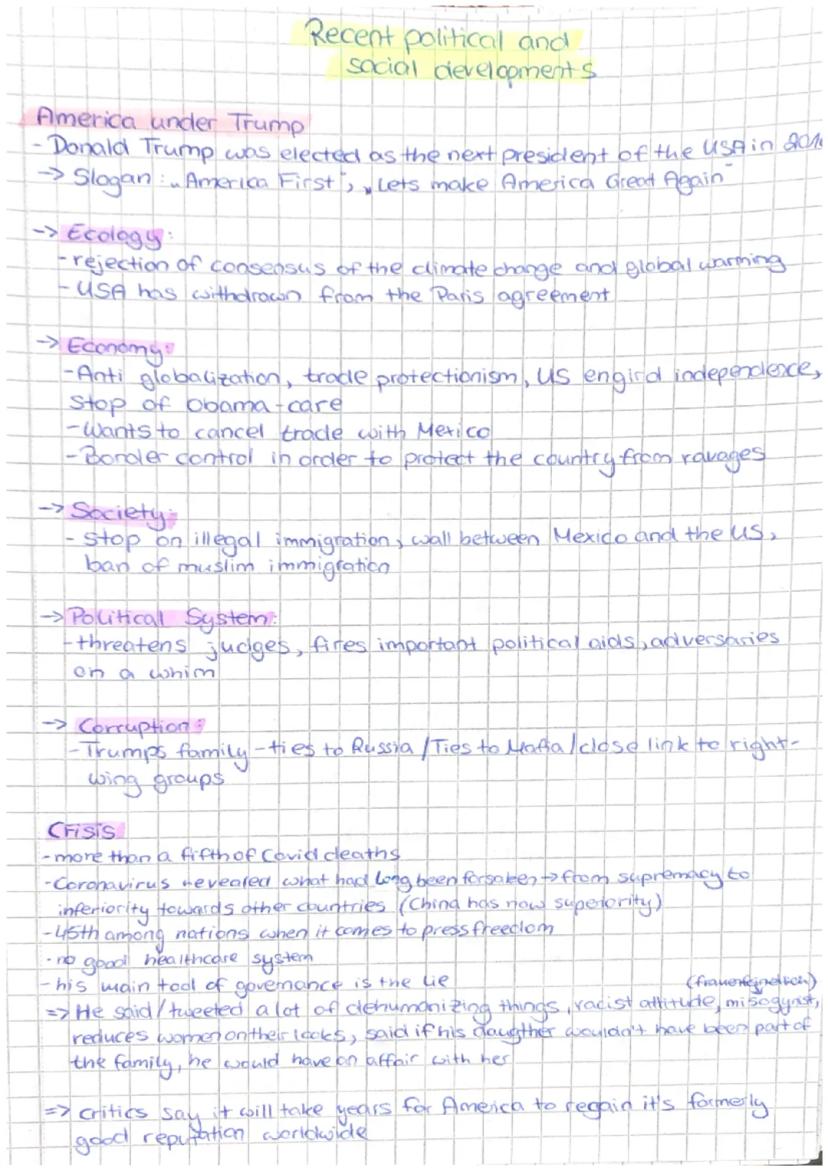 Recent political and
social developments
America under Trump
- Donald Trump was elected as the next president of the USA in 201
-> Slogan: „America First", „Lets make America Great Again"
-> Ecology:
- rejection of consensus of the climate change and global warming
- USA has withdrawn from the Paris agreement
-> Economy:
- Anti globalization, trade protectionism, US engird independence,
stop of Obama-care
- Wants to cancel trade with Mexico
- Border control in order to protect the country from ravages
-> Society:
- stop on illegal immigration, wall between Mexido and the US,
ban of muslim immigration
-> Political System:
- threatens judges, fires important political aids, adversaries
on a whim
-> Corruption:
- Trumps family - ties to Russia / Ties to Mafia / close link to right-
wing groups
Crisis
- more than a fifth of Covid deaths
- Coronavirus revealed what had long been forsaken -> from supremacy to
inferiority towards other countries (China has now superiority)
- 45th among nations when it comes to press freedom
- no good healthcare system
- his main tool of governance is the lie
(frauenfeindlich)
=> He said / tweeted a lot of dehumanizing things, racist attitude, misogynst,
reduces women on their looks, said if his daugther wouldn't have been part of
the family, he would have an affair with her
=> critics say it will take years for America to regain it's formerly
good reputation worldwide